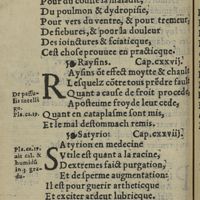 Pour du coste la maladie,
Du poulmon & d'ydropisie,
Pour vers du ventre, & pour tremeur,
De fiebures, & pour la douleur
Des ioinctures & sciaticque,
Cest chose prouuee en practicque.
Rayſins. Cap. cxxvi.
RAyſins õt effect moytte & chault
Leſquelz cõtre tous prẽdre fault
De paſſu-
lis intelli
go.
Quant a cauſe de froit procede,
Apoſteume froy de leur cede,
Pla. ca. 19.
Quant en cataplaſme sont mis,
Et le mal deſtomach remis.
Satyrio: Cap. cxxvii.
SAtyrion en medecine
Pla. ca. 12.
ait cal. &
humidũ
in 3. gra-
du.
Vtile eſt quant a la racine,
D'extremes faict purgation,
Et de ſperme augmentation:
Il eſt pour guerir artheticque
Et exciter ardeur lubricque.